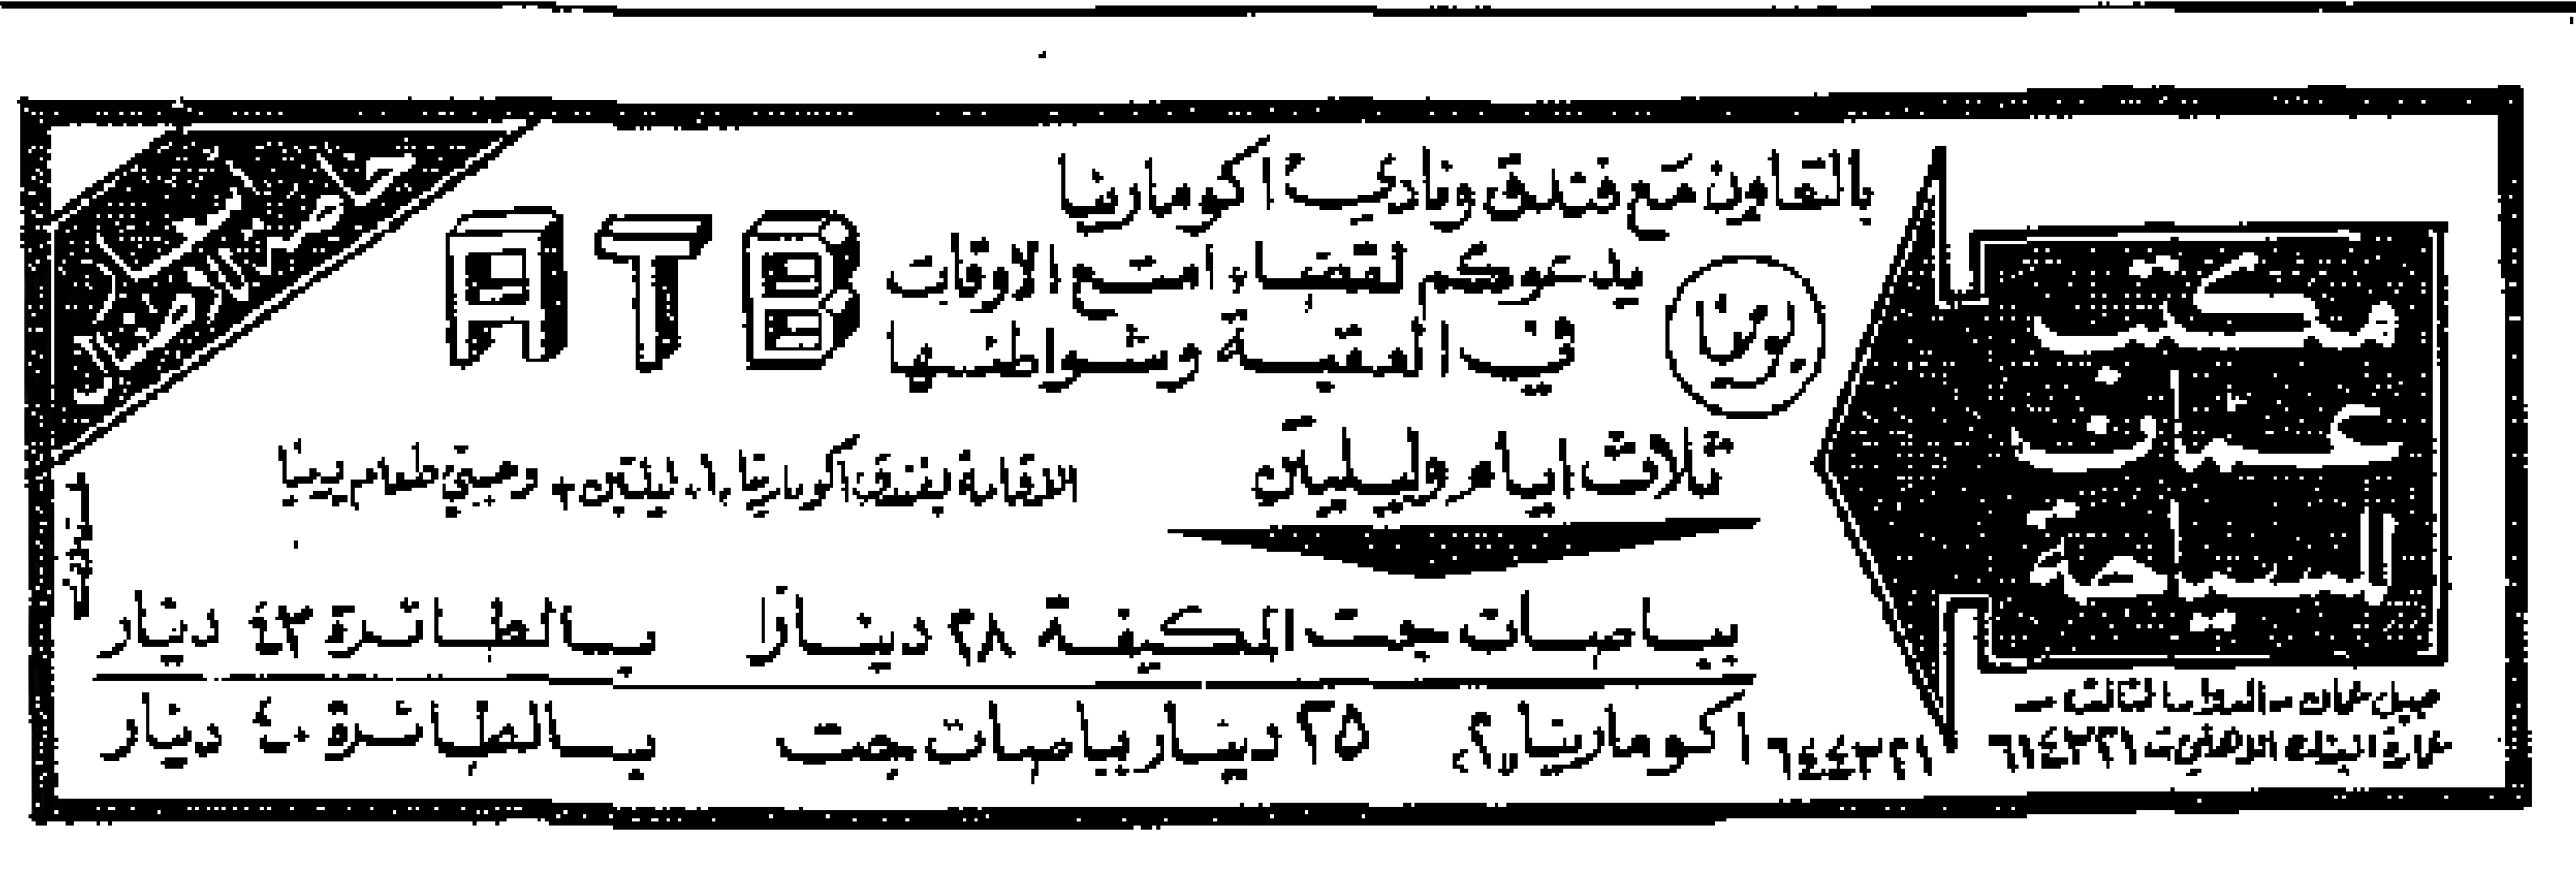 مكتب
عمان
للسياحة
جبل عمان - الدوار الثالث -
عمارة البنك الاهلي ت ٦١٤٣٢١
٦٤٤٣٢١
بالتعاون مع فندق ونادي اكومارينا
يدعوكم لقضاء امتع الاوقات
في العقبة وشواطئها
يوميا
ATB
ثلاث ايام وليلتين
الاقامة بفندق اكومارينا ١، ليلتين + وجبتي طعام يوميا
بباصات جت المكيفة ٢٨ دينارا بالطائرة ٤٣ دينار
اكومارينا "٢" ٢٥ دينار بباصات جت بالطائرة ٤٠ دينار